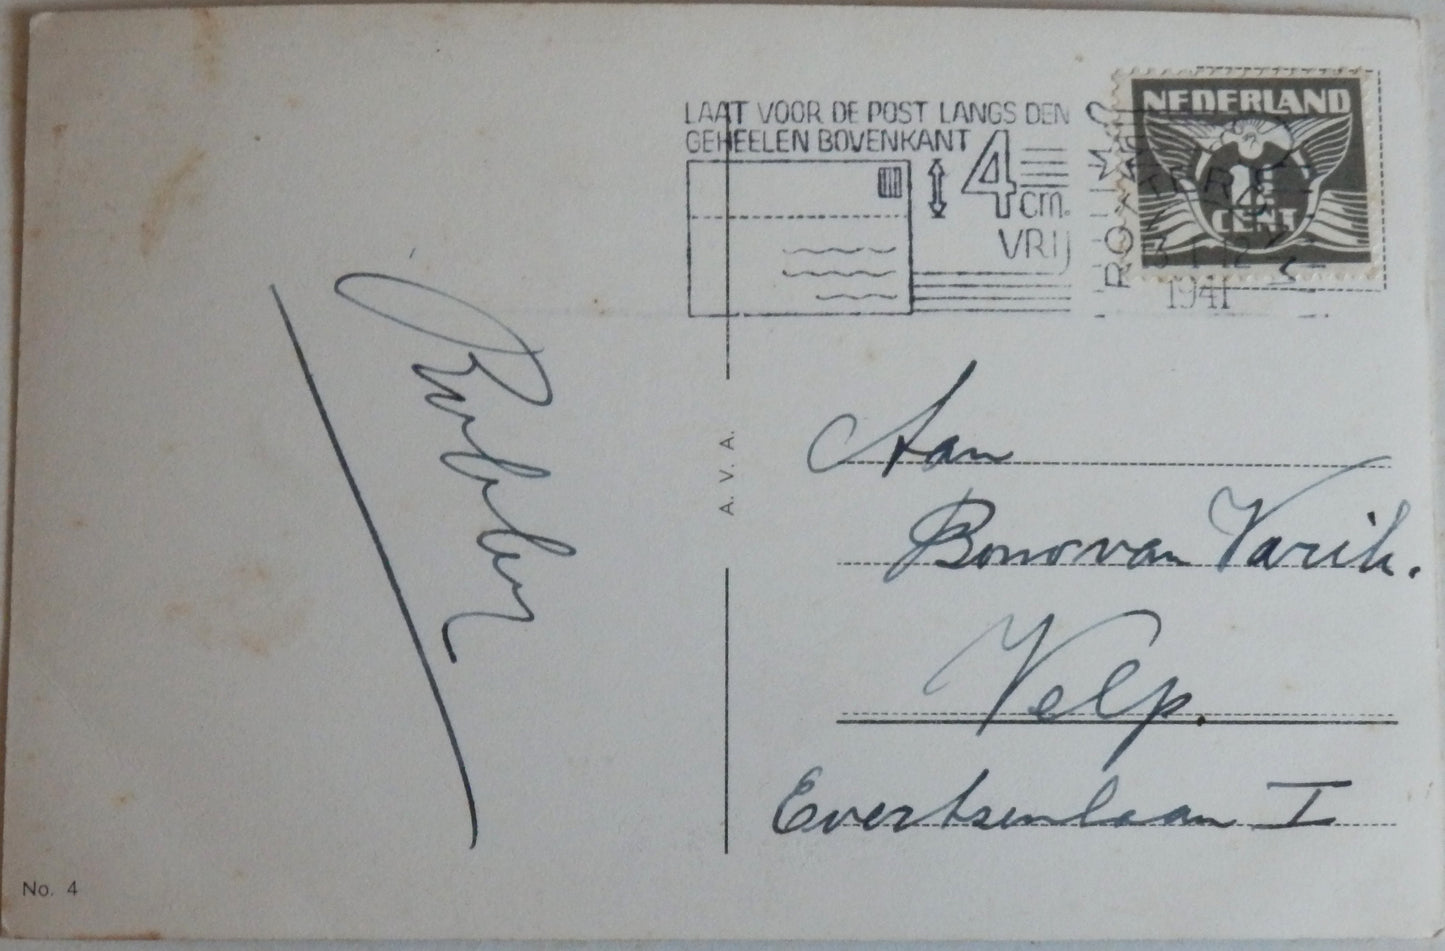 LAAT VOOR DE POST LANGS DEN
GEHEELEN BOVENKANT
4
cm.
VRIJ
NEDERLAND
CENT
1941
Aan
Bono van Varik.
Velp.
Evertsenlaan I
A. V. A.
No. 4